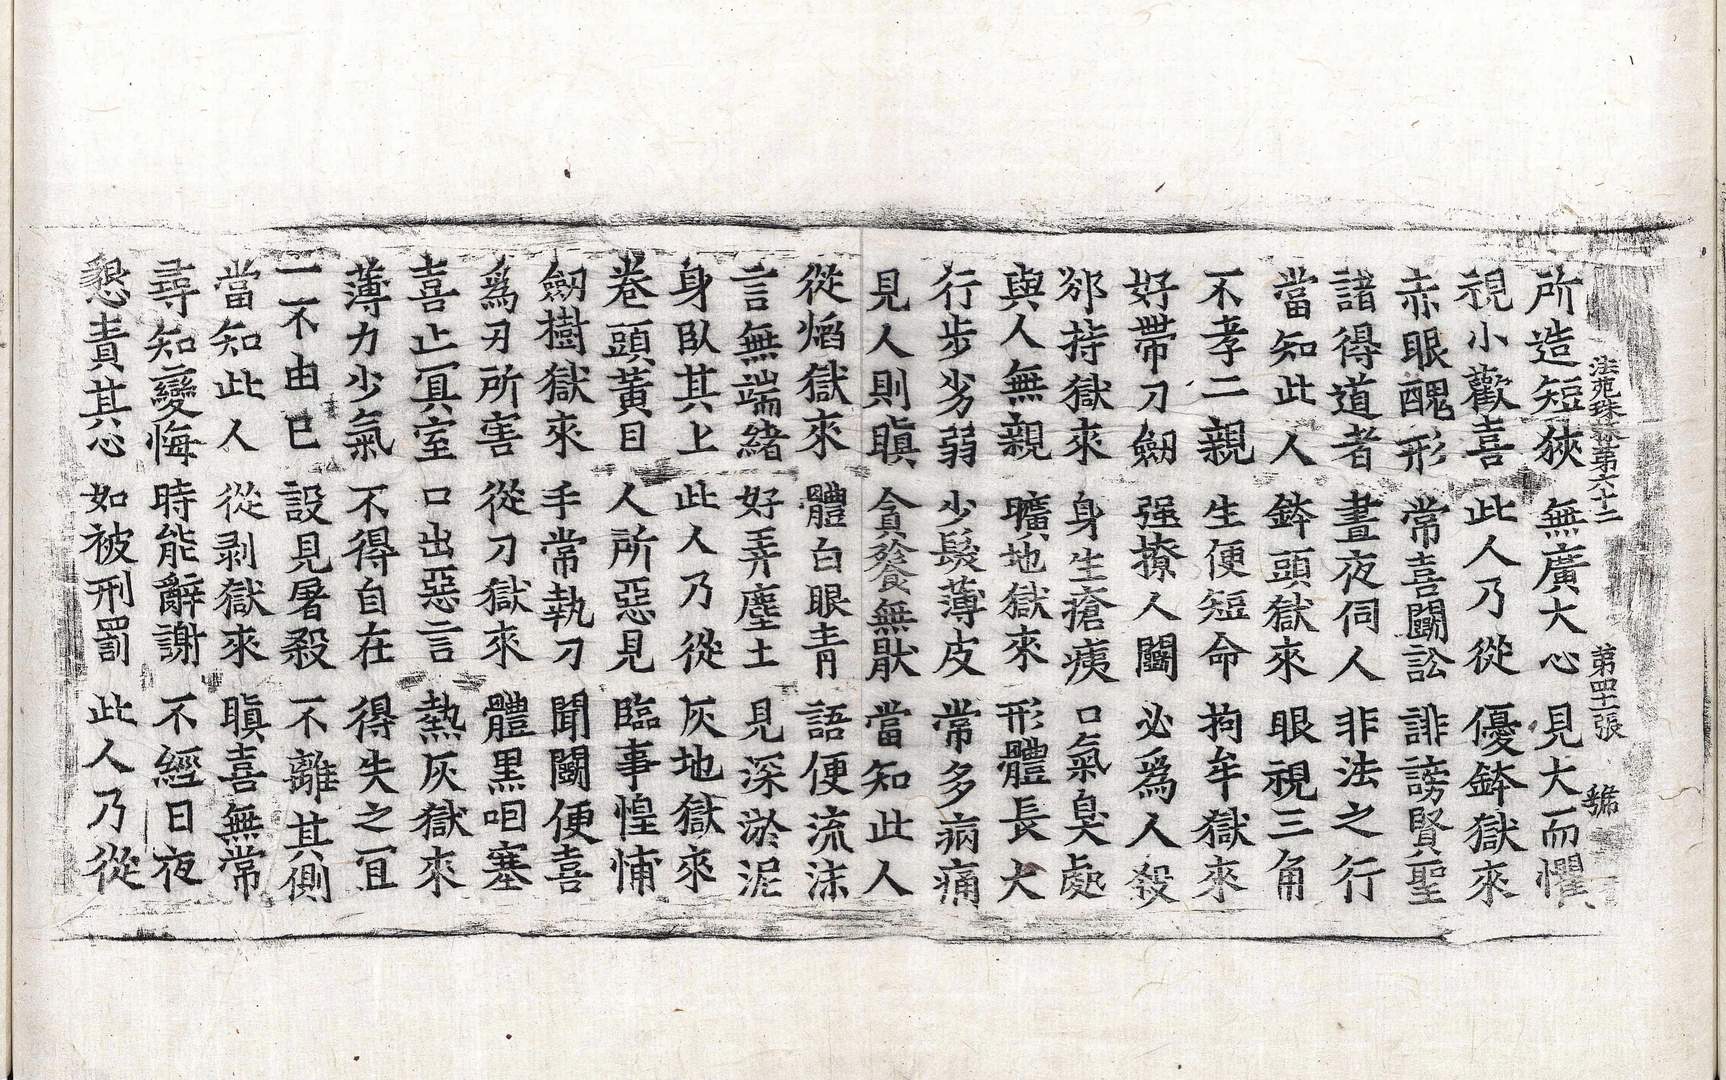 法苑珠林第六十二 第四十張 號
所造短狹 無廣大心 見大而懼
視小歡喜 此人乃從 優鉢獄來
赤眼醜形 常喜鬪訟 誹謗賢聖
諸得道者 晝夜伺人 非法之行
當知此人 鉢頭獄來 眼視三角
不孝二親 生便短命 拘牟獄來
好帶刀劒 强撩人鬪 必爲人殺
邠持獄來 身生瘡痍 口氣臭處
與人無親 曠地獄來 形體長大
行步劣弱 少髮薄皮 常多病痛
見人則瞋 貪飻無猒 當知此人
從焰獄來 體白眼青 語便流沫
言無端緒 好弄塵土 見深淤泥
身臥其上 此人乃從 灰地獄來
卷頭黃目 人所惡見 臨事惶怖
劒樹獄來 手常執刀 聞鬪便喜
爲刃所害 從刀獄來 體黑咽塞
喜止冥室 口出惡言 熱灰獄來
薄力少氣 不得自在 得失之宜
一不由已 設見屠殺 不離其側
當知此人 從剥獄來 瞋喜無常
尋知變悔 時能辭謝 不經日夜
懇責其心 如被刑罰 此人乃從